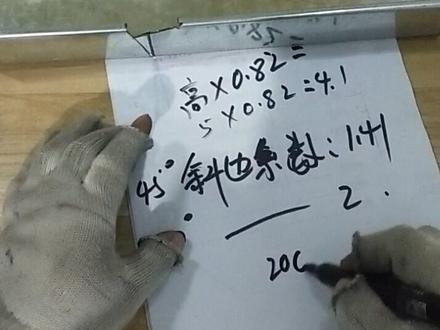 高×0.82=
5×0.82=4.1
45° 斜边系数:1.41
2.
200